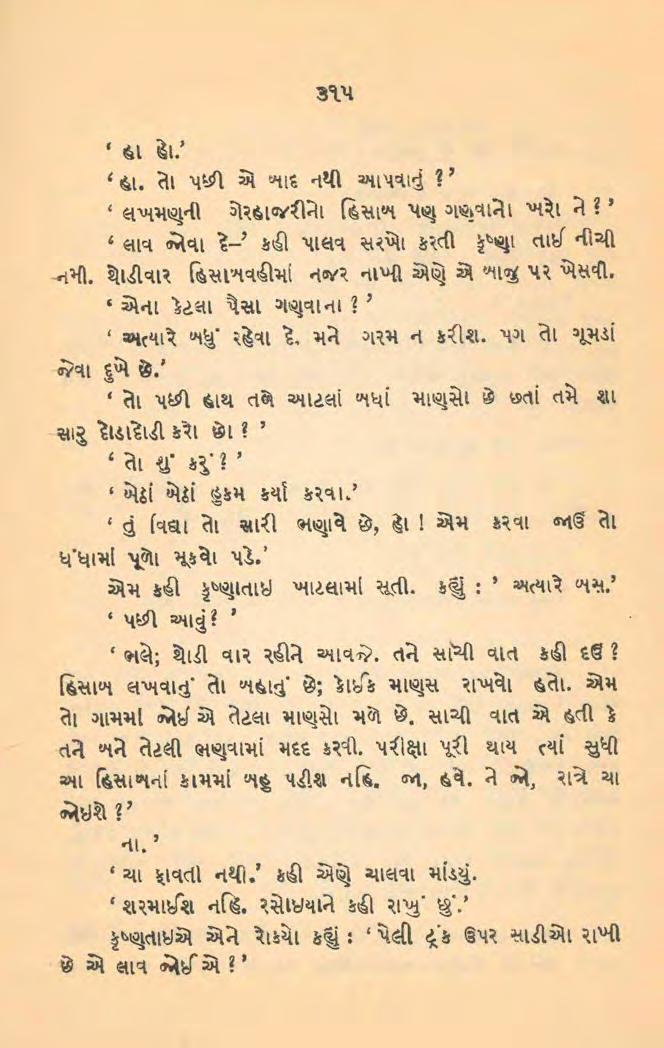 ૩૧૫
‘ હા હો.’
‘હા. તો પછી એ બાદ નથી આપવાનું ?’
‘ લખમણની ગેરહાજરીનો હિસાબ પણ ગણવાનો ખરો ને ?’
‘ લાવ જોવા દે–’ કહી પાલવ સરખો કરતી કૃષ્ણા તાઈ નીચી
નમી. થોડીવાર હિસાબવહીમાં નજર નાખી એણે એ બાજુ પર ખેસવી.
‘ એના કેટલા પૈસા ગણવાના ? ’
‘ અત્યારે બધું રહેવા દે. મને ગરમ ન કરીશ. પગ તો ગૂમડાં
જેવા દુખે છે.’
‘ તો પછી હાથ તળે આટલાં બધાં માણસો છે છતાં તમે શા
સારુ દોડાદોડી કરો છો ? ’
‘ તો શું કરું ? ’
‘ બેઠાં બેઠાં હુકમ કર્યા કરવા.’
‘ તું વિદ્યા તો સારી ભણાવે છે, હો ! એમ કરવા જાઉં તો
ધંધામાં પૂળો મૂકવો પડે.’
એમ કહી કૃષ્ણાતાઇ ખાટલામાં સૂતી. કહ્યું : ’ અત્યારે બસ.’
‘ પછી આવું ? ’
‘ ભલે; થોડી વાર રહીને આવજે. તને સાચી વાત કહી દઉં ?
હિસાબ લખવાનું તો બહાનું છે; કોઈક માણસ રાખવો હતો. એમ
તો ગામમાં જોઈ એ તેટલા માણસો મળે છે. સાચી વાત એ હતી કે
તને બને તેટલી ભણવામાં મદદ કરવી. પરીક્ષા પૂરી થાય ત્યાં સુધી
આ હિસાબનાં કામમાં બહુ પડીશ નહિ. જા, હવે. ને જો, રાત્રે ચા
જોઇશે ?’
ના. ’
‘ ચા ફાવતી નથી.’ કહી એણે ચાલવા માંડયું.
‘ શરમાઈશ નહિ. રસોઇયાને કહી રાખું છું.’
કૃષ્ણતાઇએ એને રોકયો કહ્યું : ‘ પેલી ટ્રંક ઉપર સાડીઓ રાખી
છે એ લાવ જોઈ એ ?’